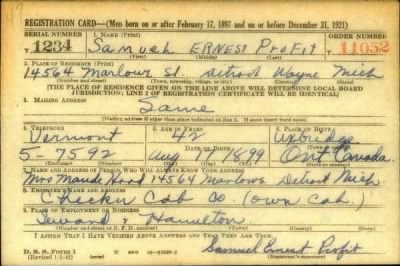 REGISTRATION CARD—(Men born on or after February 17, 1897 and on or before December 31, 1921)
SERIAL NUMBER 1. NAME (Print) ORDER NUMBER
T 1234 Samuel ERNEST Profit 11052
(First) (Middle) (Last)
2. PLACE OF RESIDENCE (Print)
14564 Marlowe St. Detroit Wayne Mich
[THE PLACE OF RESIDENCE GIVEN ON THE LINE ABOVE WILL DETERMINE LOCAL BOARD
JURISDICTION; LINE 2 OF REGISTRATION CERTIFICATE WILL BE IDENTICAL]
3. MAILING ADDRESS
Same
[Mailing address if other than place indicated on line 2. If same insert word same]
4. TELEPHONE 5. AGE IN YEARS 6. PLACE OF BIRTH
Vermont 42 Uxbridge
DATE OF BIRTH
5-7592 Aug 1899 Ont Canada
7. NAME AND ADDRESS OF PERSON WHO WILL ALWAYS KNOW YOUR ADDRESS
Mrs Maude 14564 Marlowe Detroit Mich.
8. EMPLOYER'S NAME AND ADDRESS
Checker Cab Co. (own cab.)
9. PLACE OF EMPLOYMENT OR BUSINESS
Seward & Hamilton
I AFFIRM THAT I HAVE VERIFIED ABOVE ANSWERS AND THAT THEY ARE TRUE.
D. S. S. Form 1
(Revised 1-1-42) Samuel Ernest Profit